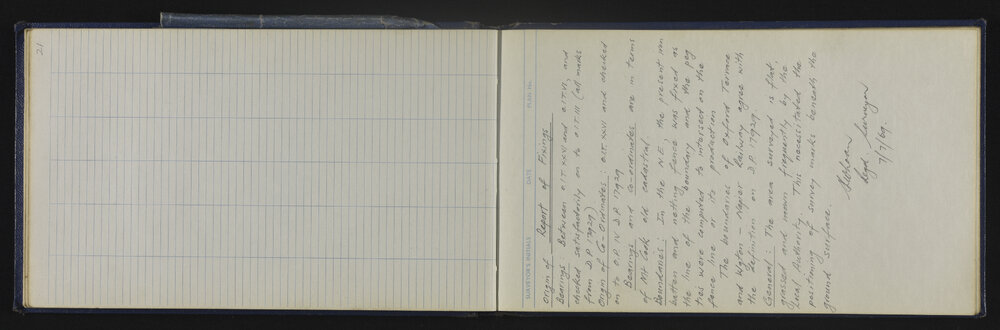 21
SURVEYOR'S INITIALS DATE PLAN No.
Report of Fixings
Origin of
Bearings: Between OIT XXVI and OIT VI, and
checked satisfactorily on to OIT III (all marks
from D.P. 17929)
Origin of Co-Ordinates: OIT XXVI and checked
on to O.P. IV D.P. 17929
Bearings and co-ordinates are in terms
of Mt Cook old cadastral
Boundaries: In the N.E. the present iron
batton and netting fence was fixed as
the line of the boundary and the peg
ties were computed to intersect on the
fence line or its production
The boundaries of Oxford Terrace
and Wgton - Napier Railway agree with
the definition on D.P. 17929.
General: The area surveyed is flat,
grassed and mown frequently by the
Local Authority. This necessitated the
positioning of survey marks beneath the
ground surface.
Regd. Surveyor
7/7/69.